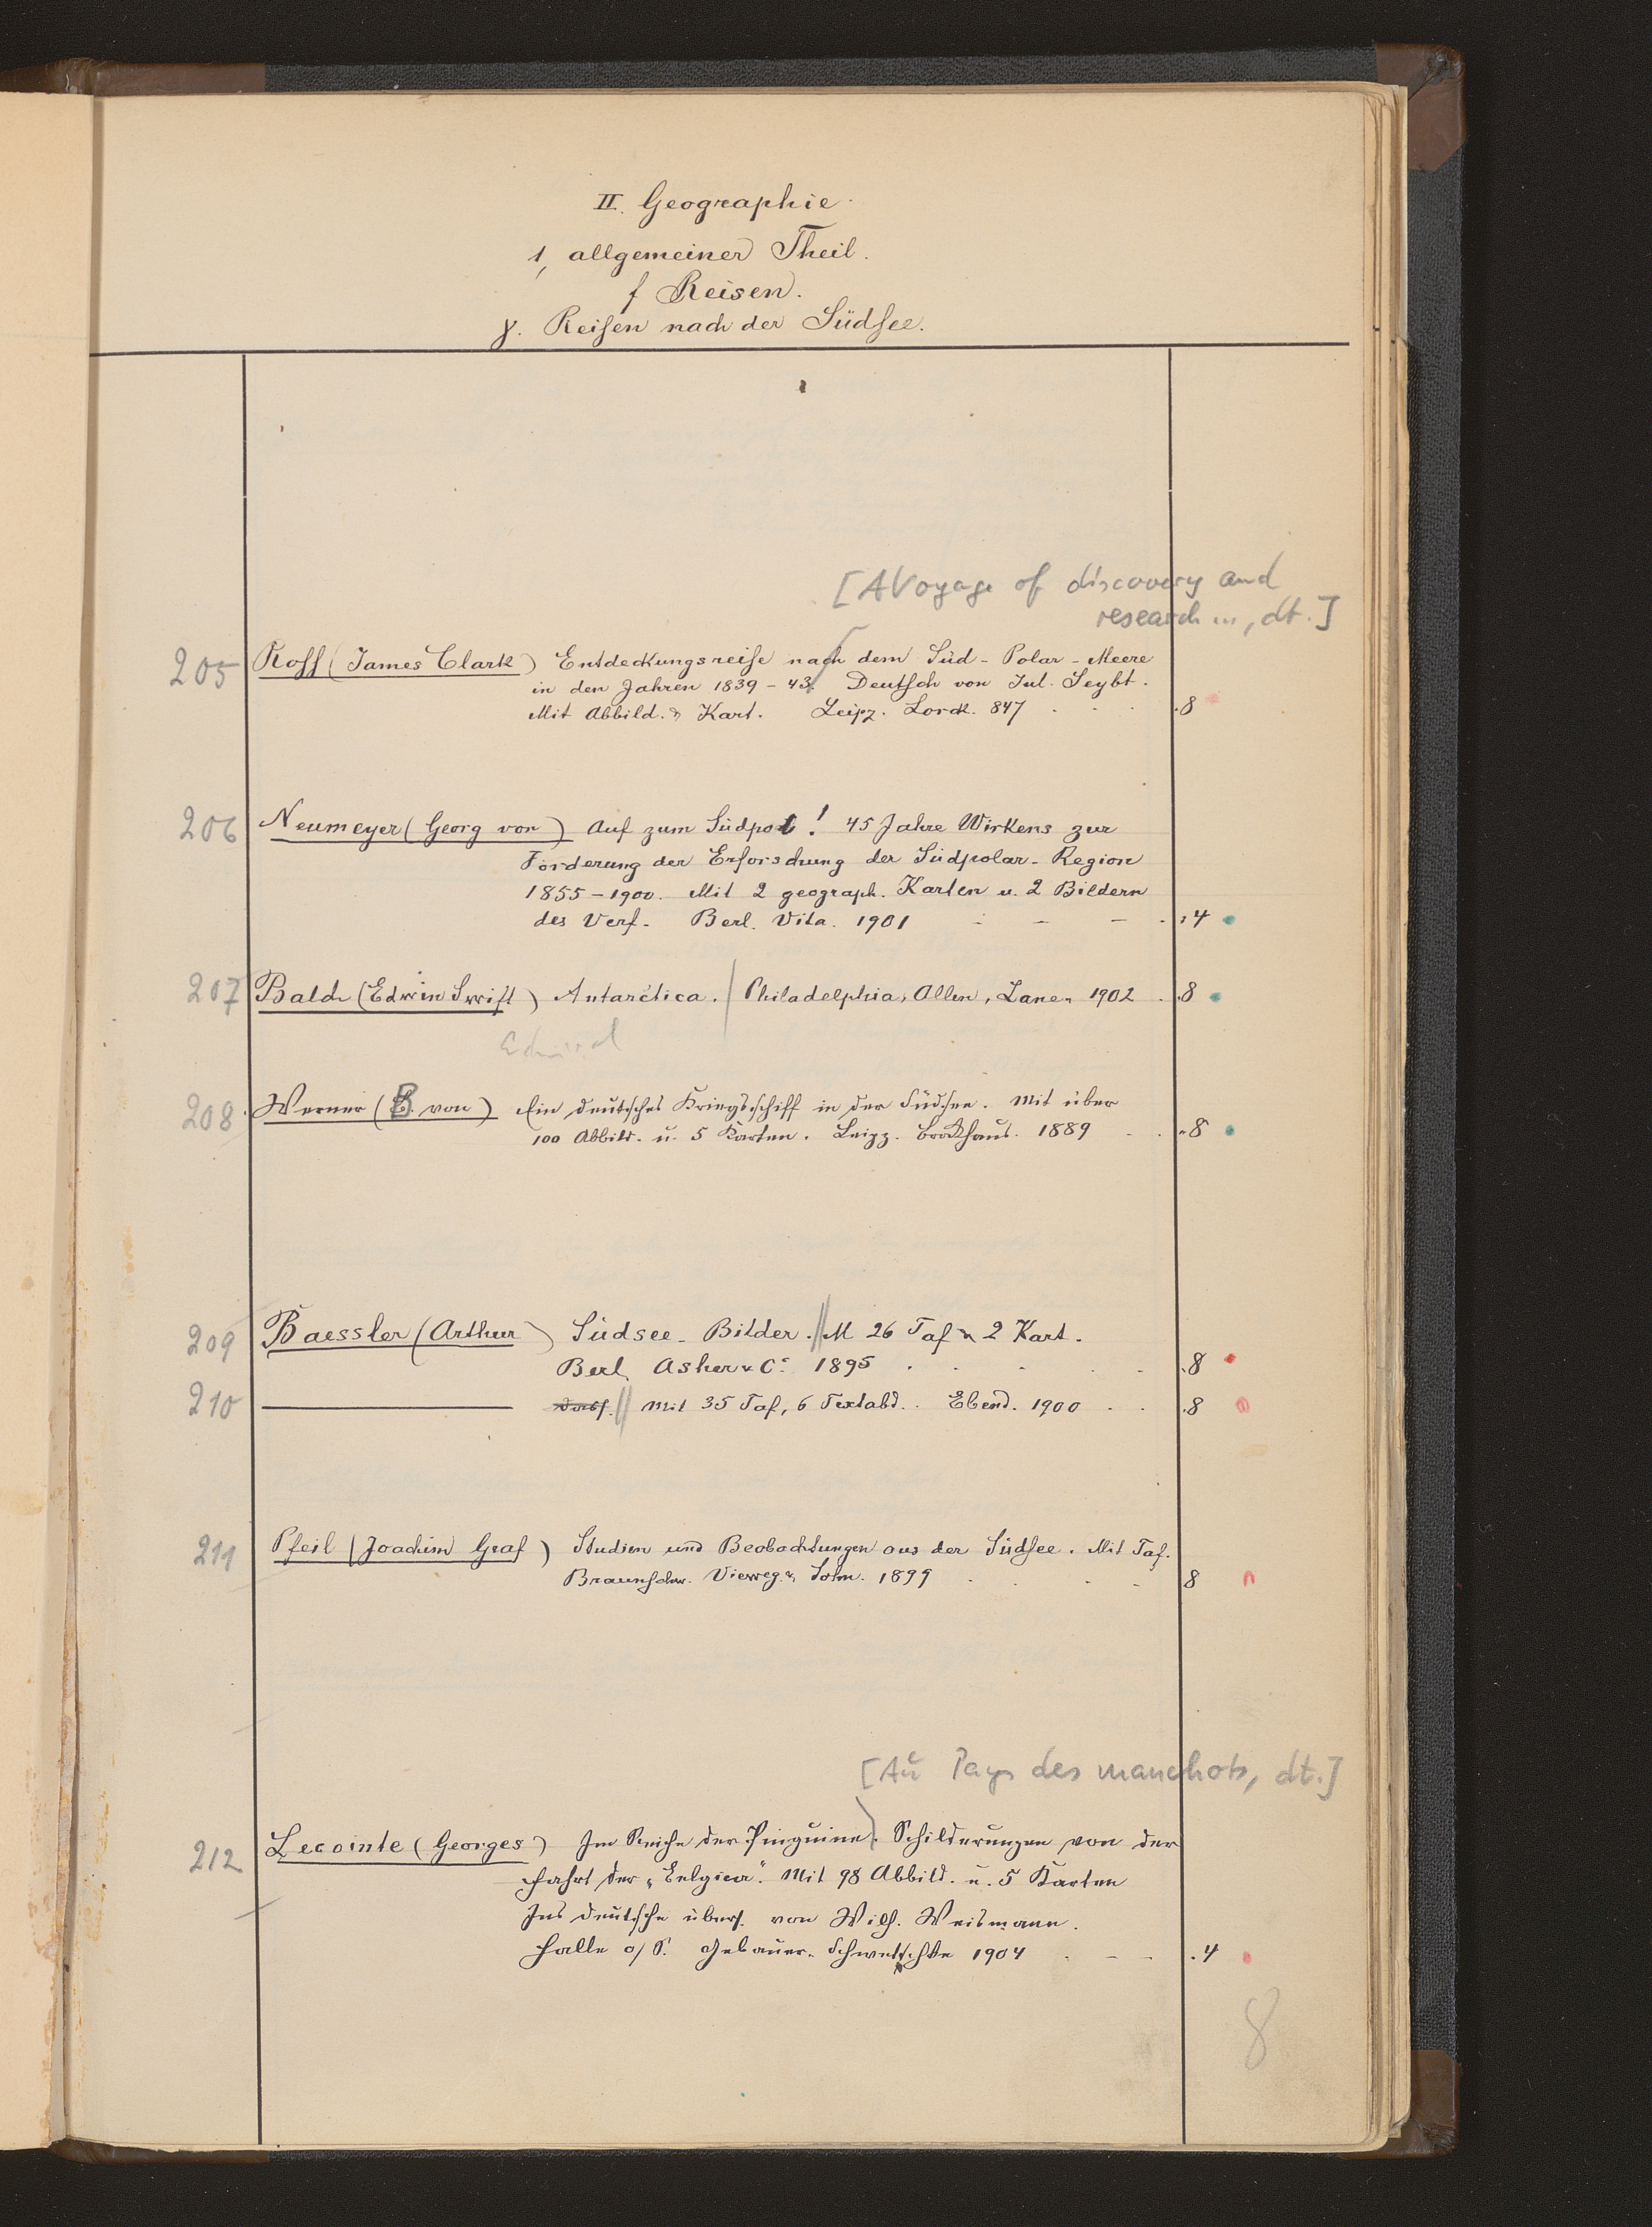 II. Geographie.
1, allgemeiner Theil.
f Reisen.
γ. Reisen nach der Südsee.
[A Voyage of discovery and
research ..., dt.]
205 Ross (James Clark) Entdeckungsreise nach dem Süd-Polar-Meere
in den Jahren 1839-43. Deutsch von Jul. Seybt.
Mit Abbild. & Kart. Leipz. Lorck. 847 . 8
206 Neumeyer (Georg von) Auf zum Südpol! 45 Jahre Wirkens zur
Förderung der Erforschung der Südpolar-Region
1855-1900. Mit 2 geograph. Karten u. 2 Bildern
des Verf. Berl. Vita. 1901 4
207 Balch (Edwin Swift) Antarctica. Philadelphia, Allen, Lane & 1902 . 8
208 Werner (B. von) Ein deutsches Kriegsschiff in der Südsee. Mit über
100 Abbild. u. 5 Karten. Leipz. Brockhaus. 1889 8
209 Baessler (Arthur) Südsee-Bilder. M 26 Taf & 2 Kart.
Berl. Asher & Co 1895 . 8
210 Mit 35 Taf, 6 Textabd. Ebend. 1900 . 8
211 Pfeil (Joachim Graf) Studien und Beobachtungen aus der Südsee. Mit Taf.
Braunschw. Vieweg & Sohn. 1899 8
[Au Pays des manchots, dt.]
212 Lecointe (Georges) Im Reiche der Pinguine. Schilderungen von der
Fahrt der „Belgica". Mit 98 Abbild. u. 5 Karten
Ins deutsche übers. von Wilh. Weismann.
Halle a/S. Gebauer-Schwetschke 1904 . 4
8